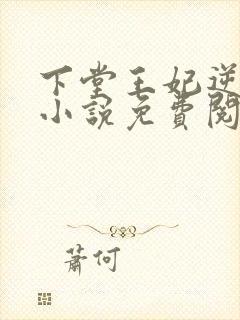 下堂王妃逆
小說免費閱
蕭何